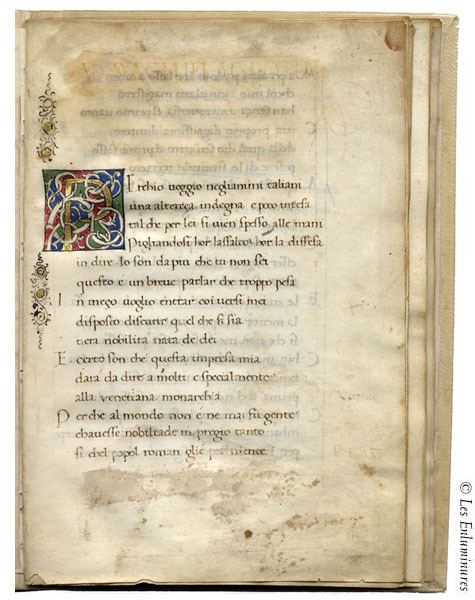 Perchio ueggio negliamini taliani
una alterança indegna e poco intesa
tal che per lei si uien spesso alle mani
Pigliandosi hor lassalto hor la diffesa
in dire Io son da piu che tu non sei
questo e un breue parlar che troppo pesa
In meço uoglio entrar coi uersi mei
disposto discutir quel che si sia
uera nobilita nata de dei
E certo son che questa impresa mia
dara da dire a molti e specialmente
alla venetiana monarchia
Perche al mondo non e ne mai fu gente
chauesse nobiltade in pregio tanto
si chel popol roman glie niente
© Les Enluminures